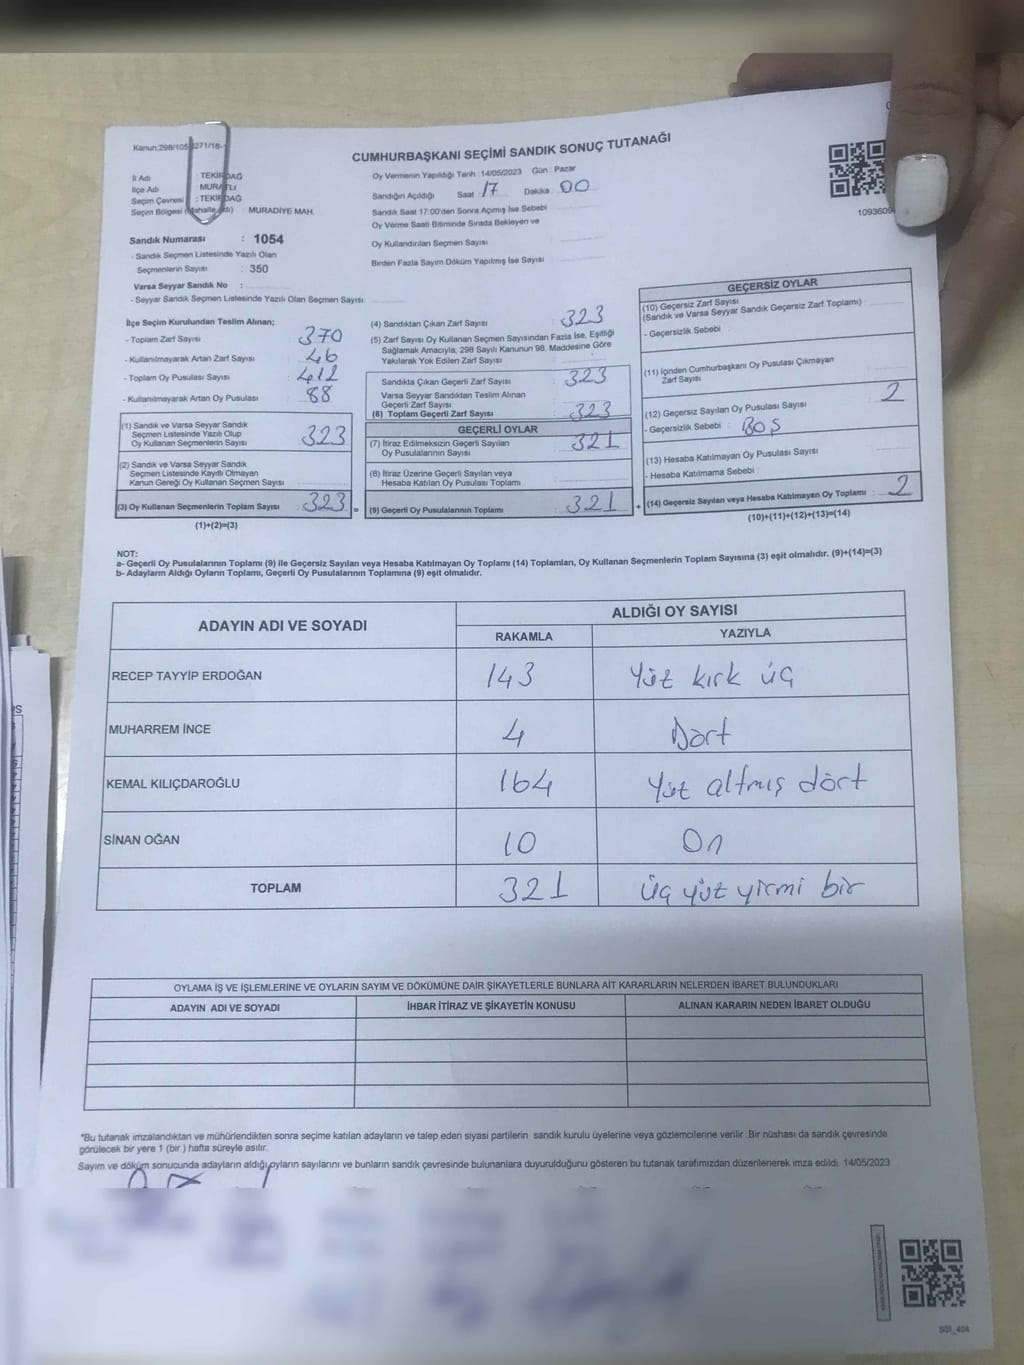 Kanun:298/105 271/16-
CUMHURBAŞKANI SEÇİMİ SANDIK SONUÇ TUTANAĞI
İl Adı : TEKİRDAĞ
İlçe Adı : MURATLI
Seçim Çevresi : TEKİRDAĞ
Seçim Bölgesi (Mahalle Adı) : MURADİYE MAH.
Sandık Numarası : 1054
- Sandık Seçmen Listesinde Yazılı Olan
Seçmenlerin Sayısı : 350
Varsa Seyyar Sandık No :
- Seyyar Sandık Seçmen Listesinde Yazılı Olan Seçmen Sayısı
Oy Vermenin Yapıldığı Tarih :14/05/2023 Gün : Pazar
Sandığın Açıldığı Saat 17 Dakika 00
Sandık Saat 17:00'den Sonra Açımış İse Sebebi
Oy Verme Saati Bitiminde Sırada Bekleyen ve
Oy Kullandırılan Seçmen Sayısı
Birden Fazla Sayım Döküm Yapılmış İse Sayısı
1093609
İlçe Seçim Kurulundan Teslim Alınan;
- Toplam Zarf Sayısı : 370
- Kullanılmayarak Artan Zarf Sayısı : 46
- Toplam Oy Pusulası Sayısı : 412
- Kullanılmayarak Artan Oy Pusulası : 88
(1) Sandık ve Varsa Seyyar Sandık
Seçmen Listesinde Yazılı Olup
Oy Kullanan Seçmenlerin Sayısı : 323
(2) Sandık ve Varsa Seyyar Sandık
Seçmen Listesinde Kayıtlı Olmayan
Kanun Gereği Oy Kullanan Seçmen Sayısı :
(3) Oy Kullanan Seçmenlerin Toplam Sayısı : 323 =
(1)+(2)=(3)
(4) Sandıktan Çıkan Zarf Sayısı : 323
(5) Zarf Sayısı Oy Kullanan Seçmen Sayısından Fazla İse, Eşitliği
Sağlamak Amacıyla; 298 Sayılı Kanunun 98. Maddesine Göre
Yakılarak Yok Edilen Zarf Sayısı :
Sandıkta Çıkan Geçerli Zarf Sayısı : 323
Varsa Seyyar Sandıktan Teslim Alınan
Geçerli Zarf Sayısı :
(6) Toplam Geçerli Zarf Sayısı : 323
GEÇERLİ OYLAR
(7) İtiraz Edilmeksizin Geçerli Sayılan
Oy Pusulalarının Sayısı : 321
(8) İtiraz Üzerine Geçerli Sayılan veya
Hesaba Katılan Oy Pusulası Toplamı :
(9) Geçerli Oy Pusulalarının Toplamı : 321 +
GEÇERSİZ OYLAR
(10) Geçersiz Zarf Sayısı
(Sandık ve Varsa Seyyar Sandık Geçersiz Zarf Toplamı) :
- Geçersizlik Sebebi :
(11) İçinden Cumhurbaşkanı Oy Pusulası Çıkmayan
Zarf Sayısı :
(12) Geçersiz Sayılan Oy Pusulası Sayısı : 2
- Geçersizlik Sebebi : BOŞ
(13) Hesaba Katılmayan Oy Pusulası Sayısı :
- Hesaba Katılmama Sebebi :
(14) Geçersiz Sayılan veya Hesaba Katılmayan Oy Toplamı : 2
(10)+(11)+(12)+(13)=(14)
NOT:
a- Geçerli Oy Pusulalarının Toplamı (9) ile Geçersiz Sayılan veya Hesaba Katılmayan Oy Toplamı (14) Toplamları, Oy Kullanan Seçmenlerin Toplam Sayısına (3) eşit olmalıdır. (9)+(14)=(3)
b- Adayların Aldığı Oyların Toplamı, Geçerli Oy Pusulalarının Toplamına (9) eşit olmalıdır.
ADAYIN ADI VE SOYADI
ALDIĞI OY SAYISI
RAKAMLA YAZIYLA
RECEP TAYYİP ERDOĞAN 143 Yüz kırk üç
MUHARREM İNCE 4 Dört
KEMAL KILIÇDAROĞLU 164 Yüz altmış dört
SİNAN OĞAN 10 On
TOPLAM 321 Üç yüz yirmi bir
OYLAMA İŞ VE İŞLEMLERİNE VE OYLARIN SAYIM VE DÖKÜMÜNE DAİR ŞİKAYETLERLE BUNLARA AİT KARARLARIN NELERDEN İBARET BULUNDUKLARI
ADAYIN ADI VE SOYADI İHBAR İTİRAZ VE ŞİKAYETİN KONUSU ALINAN KARARIN NEDEN İBARET OLDUĞU
*Bu tutanak imzalandıktan ve mühürlendikten sonra seçime katılan adayların ve talep eden siyasi partilerin sandık kurulu üyelerine veya gözlemcilerine verilir .Bir nüshası da sandık çevresinde
görülecek bir yere 1 (bir ) hafta süreyle asılır.
Sayım ve döküm sonucunda adayların aldığı oyların sayılarını ve bunların sandık çevresinde bulunanlara duyurulduğunu gösteren bu tutanak tarafımızdan düzenlenerek imza edildi. 14/05/2023